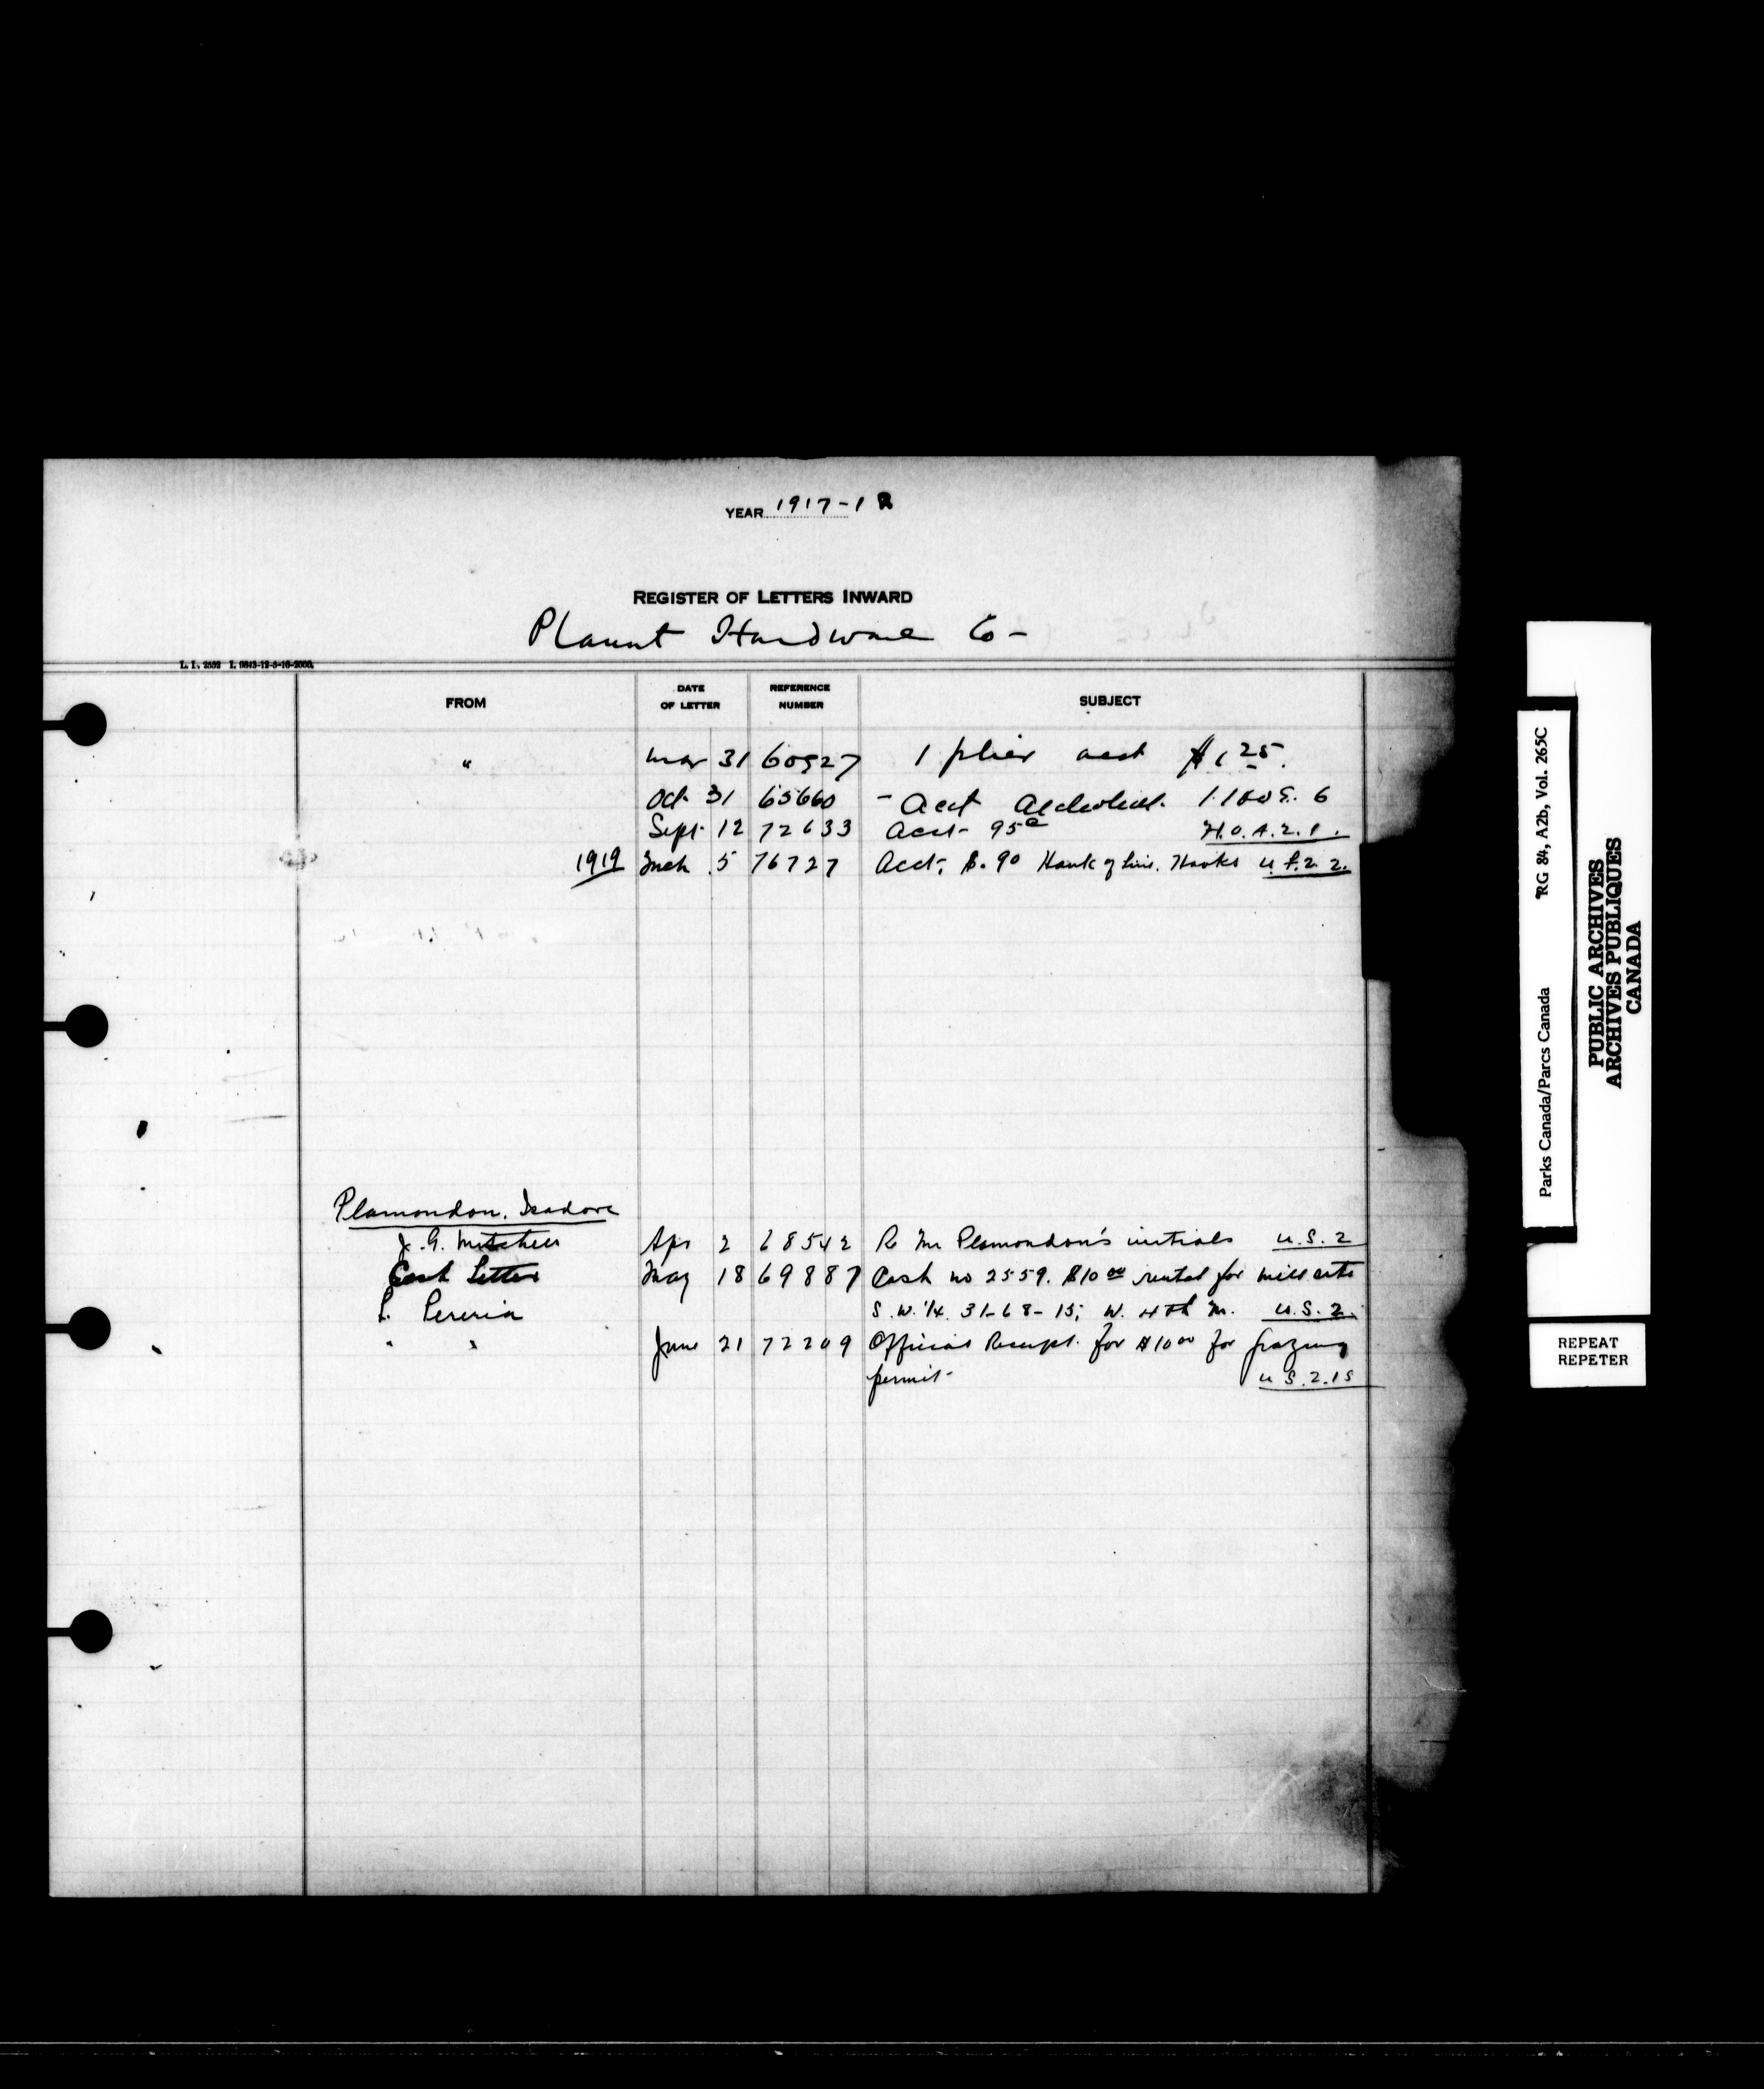 YEAR 1917-18
REGISTER OF LETTERS INWARD
Plaunt Hardware Co-
L. I. 2552 I. 9843-12-5-16-2000.
FROM DATE OF LETTER REFERENCE NUMBER SUBJECT
" Mar 31 60527 1 plier acct $1.25.
Oct 31 65660 - Acct
Sept 12 72633 Acct- 95c H.O.A.2.1.
1919 Mch 5 76727 Acct, $.90 Hooks U.S.2 2.
Plamondon, Isadore
J.G. Mitchell Apr 2 68542 Re Mr Plamondon's initials U.S.2
Cash Letter May 18 69887 Cash no 2559. $10 00 rental for mill site
L. Pereria S.W. 1/4 31-68-15; W. 4th M. U.S.2.
" " June 21 72209 Official Receipt. for $10 00 for grazing
permit- U.S.2.15
RG 84, A2b, Vol. 265C
Parks Canada/Parcs Canada
PUBLIC ARCHIVES
ARCHIVES PUBLIQUES
CANADA
REPEAT
REPETER